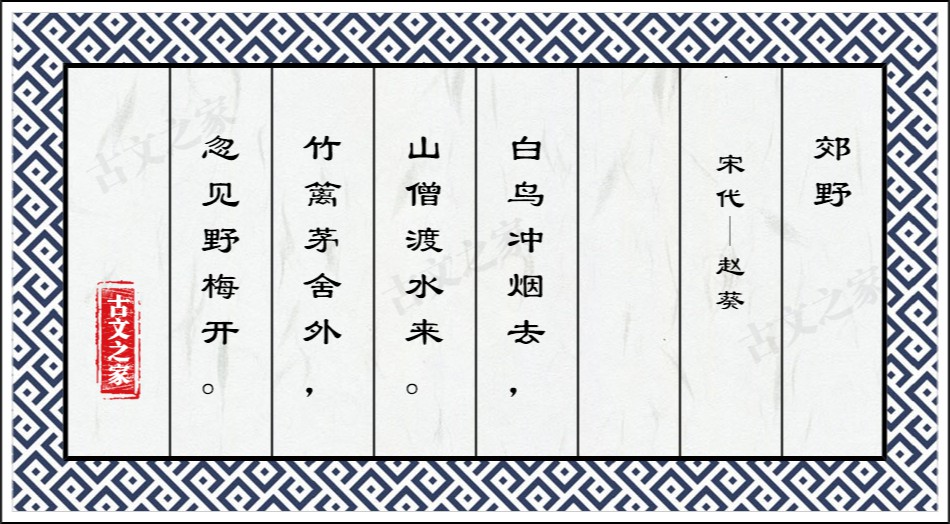 郊野
宋代——赵葵
白鸟冲烟去，
山僧渡水来。
竹篱茅舍外，
忽见野梅开。
古文之家
古文之家
古文之家
古文之家